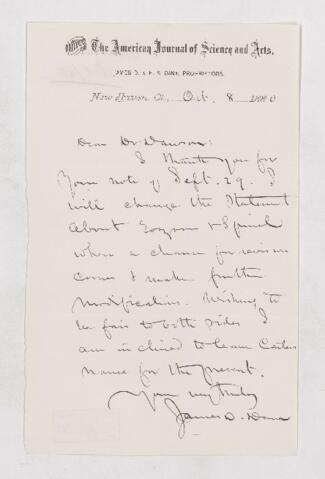 The American Journal of Science and Arts.
JAMES D. & E. S. DANA, PROPRIETORS.
New Haven, Ct., Oct. 8 1880
Dear Dr Dawson:
I thank you for
your note of Sept. 29. I
will change the statement
about Eozoon & Spinel
when a chance for revision
comes & make further
modification. Wishing to
be fair to both sides I
am inclined to leave Carter's
name for the present.
Yours very truly
James D. Dana